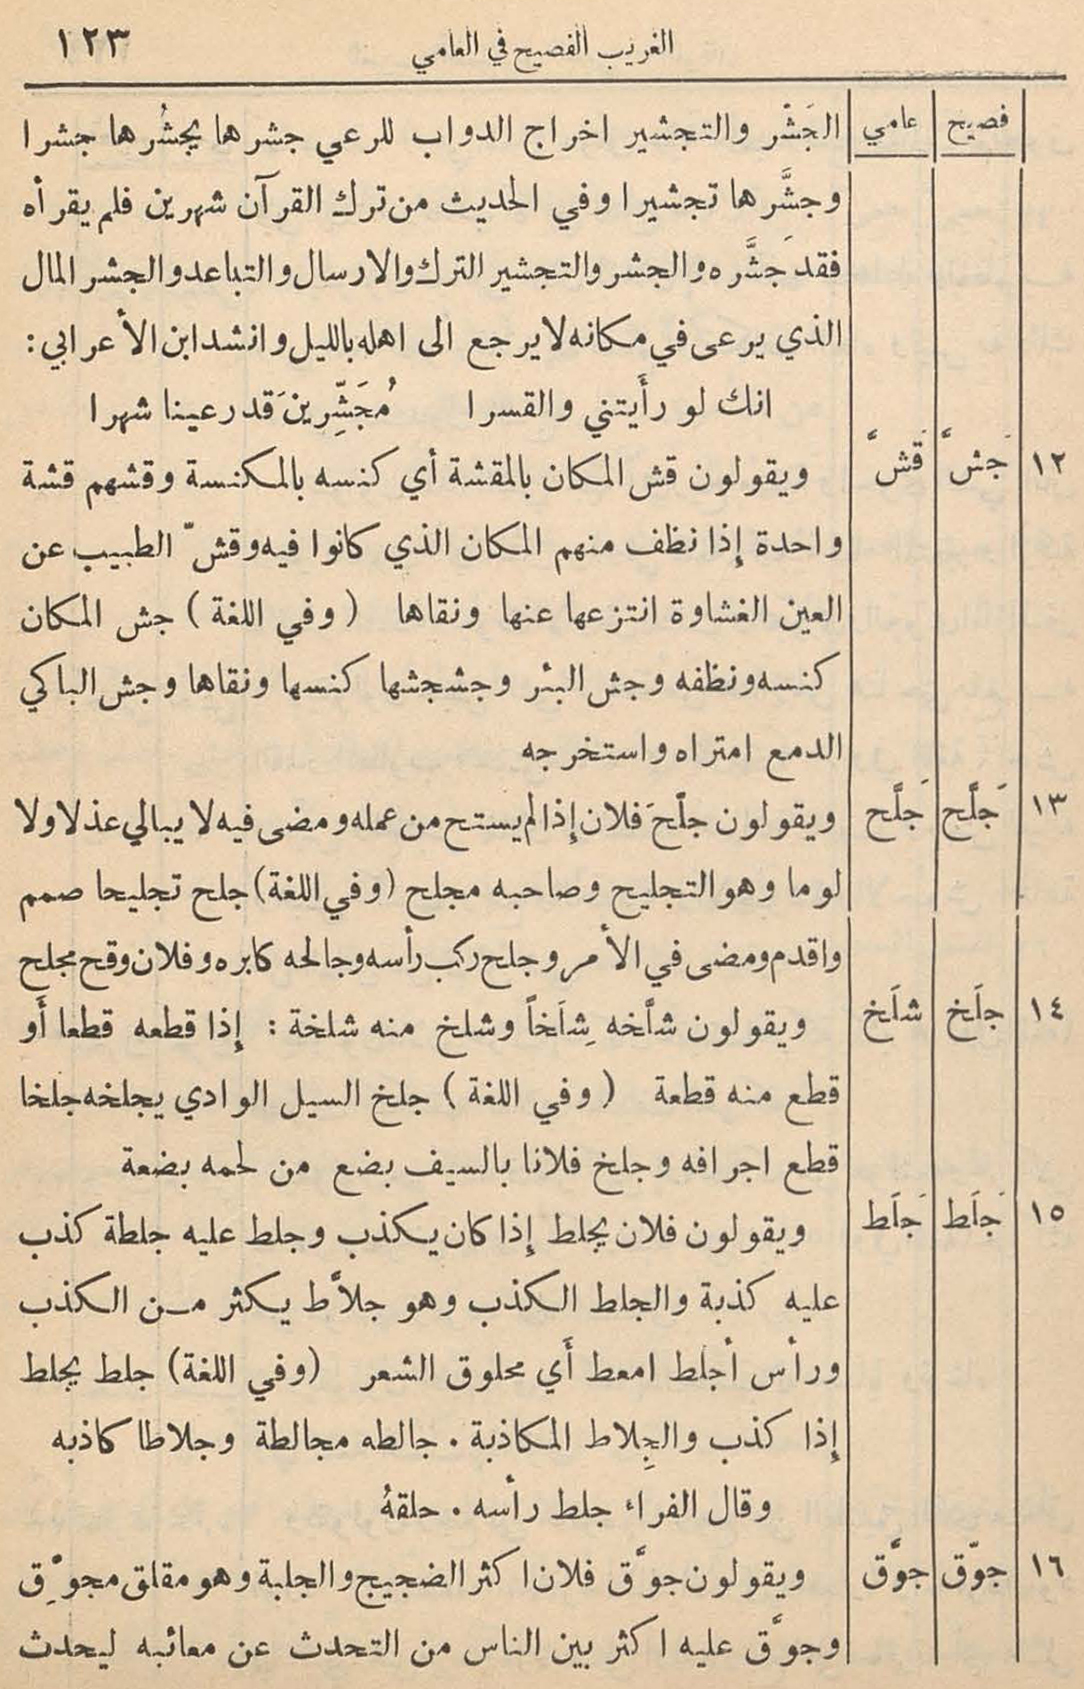 الغريب الفصيح في العامي ١٢٣
فصيح عامي الجَشْر والتجشير اخراج الدواب للرعي جشرها يجشُرها جشرا
وجشَّرها تجشيرا وفي الحديث من ترك القرآن شهرين فلم يقرأه
فقد جَشَّره والجشر والتجشير الترك والارسال والتباعد والجشر المال
الذي يرعى في مكانه لا يرجع الى اهله بالليل وانشد ابن الأعرابي :
انك لو رأَيتني والقسرا مُجَشِّرينَ قد رعينا شهرا
١٢ جَشَّ قَشَّ ويقولون قش المكان بالمقشة أي كنسه بالمكنسة وقشهم قشة
واحدة إِذا نظف منهم المكان الذي كانوا فيه وقشّ الطبيب عن
العين الغشاوة انتزعها عنها ونقاها ( وفي اللغة ) جش المكان
كنسه ونظفه وجش البئر وجشجشها كنسها ونقاها وجش الباكي
الدمع امتراه واستخرجه
١٣ جَلَّح جَلَّح ويقولون جلّحَ فلان إِذا لم يستح من عمله ومضى فيه لا يبالي عذلا ولا
لوما وهو التجليح وصاحبه مجلح (وفي اللغة) جلح تجليحا صمم
واقدم ومضى في الأمر وجلح ركب رأسه وجالحه كابره وفلان وقح مجلح
١٤ جلَخ شلَخ ويقولون شلَّخه شِلَخاً وشلخ منه شلخة : إِذا قطعه قطعا أَو
قطع منه قطعة ( وفي اللغة ) جلخ السيل الوادي يجلخه جلخا
قطع اجرافه وجلخ فلانا بالسيف بضع من لحمه بضعة
١٥ جَلَط جَلَط ويقولون فلان يجلط إِذا كان يكذب وجلط عليه جلطة كذب
عليه كذبة والجلط الكذب وهو جلاَّط يكثر من الكذب
ورأس أجلط امعط أَي محلوق الشعر (وفي اللغة) جلط يجلط
إِذا كذب والجِلاط المكاذبة . جالطه مجالطة وجلاطا كاذبه
وقال الفراء جلط رأسه . حلقهُ
١٦ جوّق جوَّق ويقولون جوَّق فلان اكثر الضجيج والجلبة وهو مقلق مجوِّق
وجوَّق عليه اكثر بين الناس من التحدث عن معائبه ليحدث